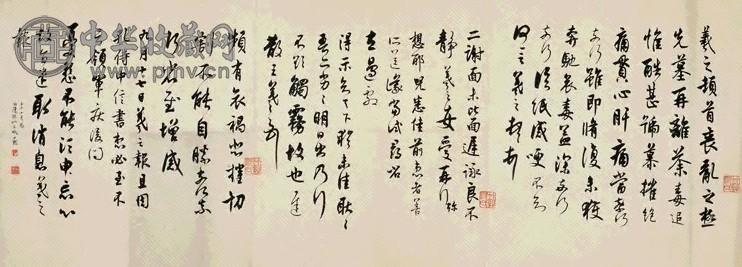 中华收藏网
羲之頓首喪亂之極
先墓再離荼毒追
惟酷甚號慕摧絕
痛貫心肝痛當奈何
奈何雖即脩復未獲
奔馳哀毒益深奈何
奈何臨紙感哽不知
何言羲之頓首頓首
二謝面未比面遲詠良不
靜羲之女愛再拜
想邪兒悉佳前患者善
所送議當試尋省
左邊劇
得示知足下猶未佳耿耿
吾亦劣劣明日出乃行
不欲觸霧故也遲
散王羲之頓首
頻有哀禍悲摧切
割不能自勝奈何奈
何省慰增感
九月十七日羲之報且因
孔侍中信書想必至不
知領軍疾後問
憂懸不能須臾忘心
故旨遣取消息羲之
報